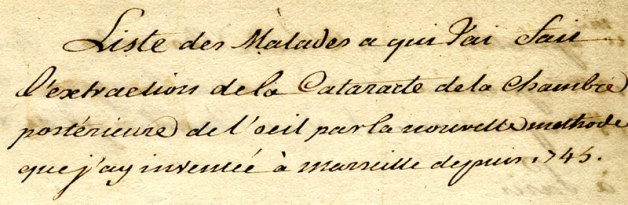 Liste des Malades a qui J'ai fait
l'extraction de la Cataracte de la Chambre
postérieure de l'oeil par la nouvelle methode
que j'ay inventée à Marseille depuis 1745.